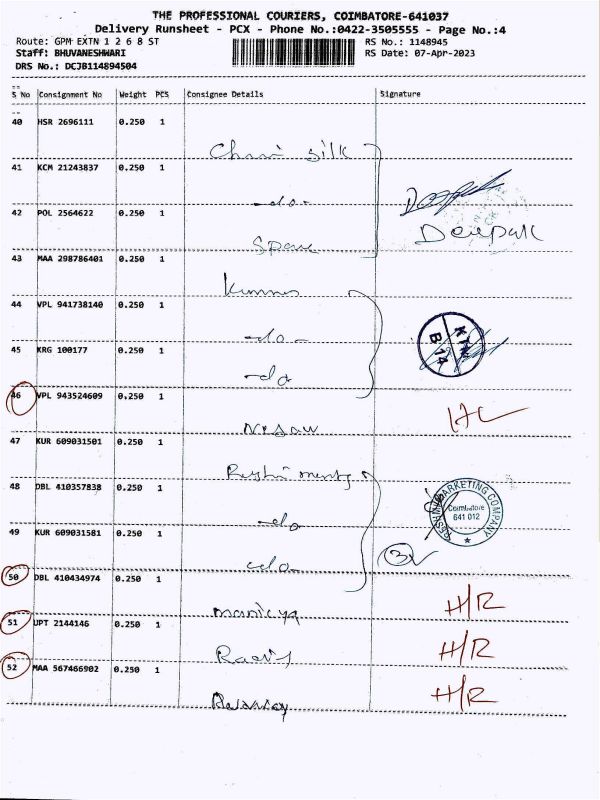 THE PROFESSIONAL COURIERS, COIMBATORE-641037
Delivery Runsheet - PCX - Phone No.:0422-3505555 - Page No.:4
Route: GPM EXTN 1 2 6 8 ST RS No.: 1148945
Staff: BHUVANESHWARI RS Date: 07-Apr-2023
DRS No.: DCJB114894504
S No Consignment No Weight PCS Consignee Details Signature
40 HSR 2696111 0.250 1
silk
41 KCM 21243837 0.250 1
-do-
42 POL 2564622 0.250 1
Deepak
43 MAA 298786401 0.250 1
44 VPL 941738140 0.250 1
-do-
KTM
B 14
45 KRG 100177 0.250 1
-do
46 VPL 943524609 0.250 1
47 KUR 609031501 0.250 1
48 DBL 410357838 0.250 1
RESHMI MARKETING COMPANY
Coimbatore
641 012
-do
49 KUR 609031581 0.250 1
-do-
50 DBL 410434974 0.250 1
H/R
51 UPT 2144146 0.250 1
H/R
52 MAA 567466902 0.250 1
H/R